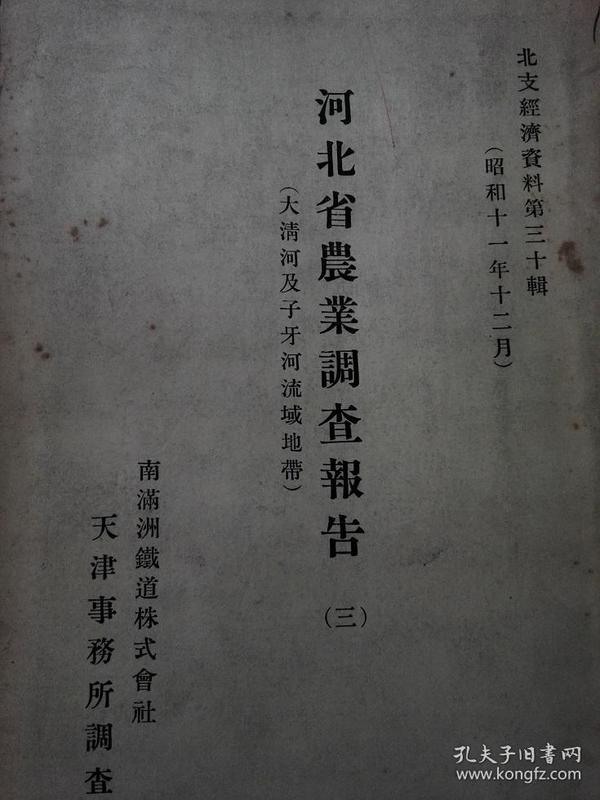 北支經濟資料第三十輯
(昭和十一年十二月)
河北省農業調査報告(三)
(大淸河及子牙河流域地帶)
南滿洲鐵道株式會社
天津事務所調査
孔夫子旧书网
www.kongfz.com